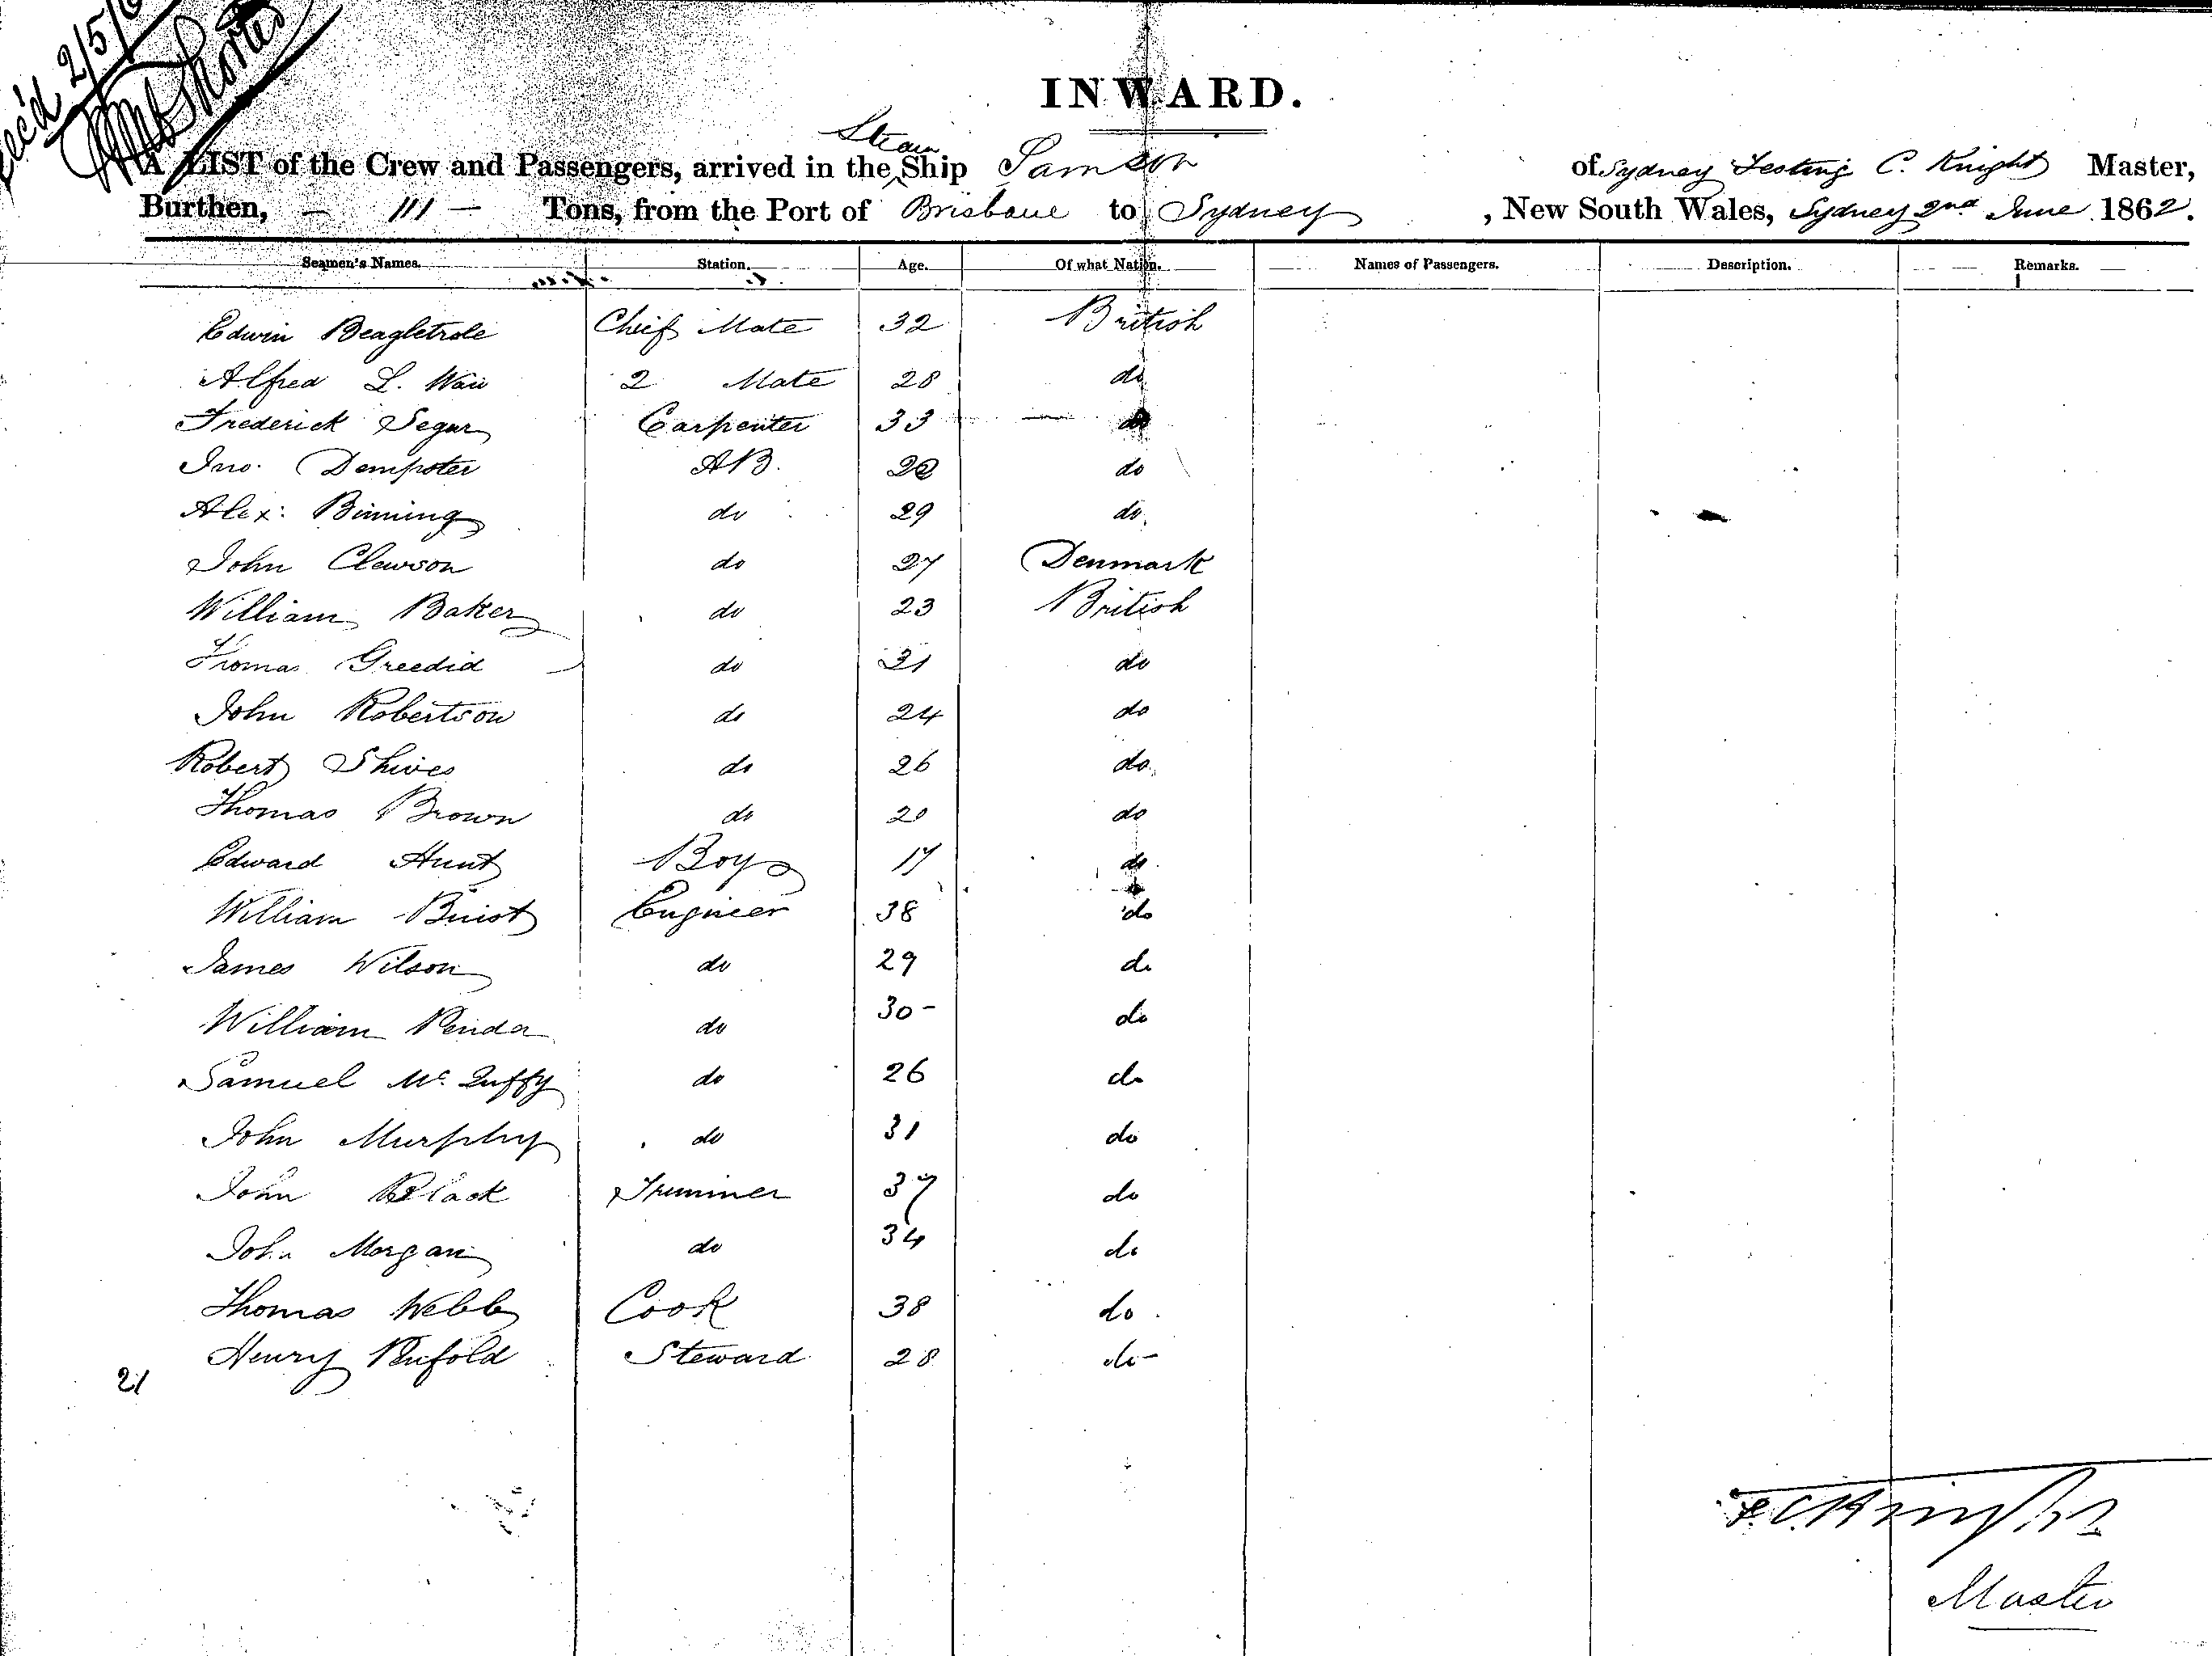 Rec'd 2/5/6
INWARD.
Steam
A LIST of the Crew and Passengers, arrived in the Ship Samson of Sydney Festing C. Knight Master,
Burthen, - 111 - Tons, from the Port of Brisbane to Sydney, New South Wales, Sydney 2nd June 1862.
Seamen's Names. Station. Age. Of what Nation. Names of Passengers. Description. Remarks.
Edwin Beagletrole Chief Mate 32 British
Alfred L. 2 Mate 28 do
Frederick Segar Carpenter 33 do
Jno. Dempster AB. do
Alex: Binning do 29 do
John Clewson do 27 Denmark
William Baker do 23 British
Greedid do do
John Robertson do 24 do
Robert Shives do 26 do
Thomas Brown do 20 do
Edward Hunt Boy 17 do
William Buist Engineer 38 do
James Wilson do 29 do
William Penda do 30 - do
Samuel Mc Quffy do 26 do
John Murphy do 31 do
John Black Trimmer 37 do
John Morgan do 34 do
Thomas Webb Cook 38 do
Henry Penfold Steward 28 do -
21
F. C. Knight
Master